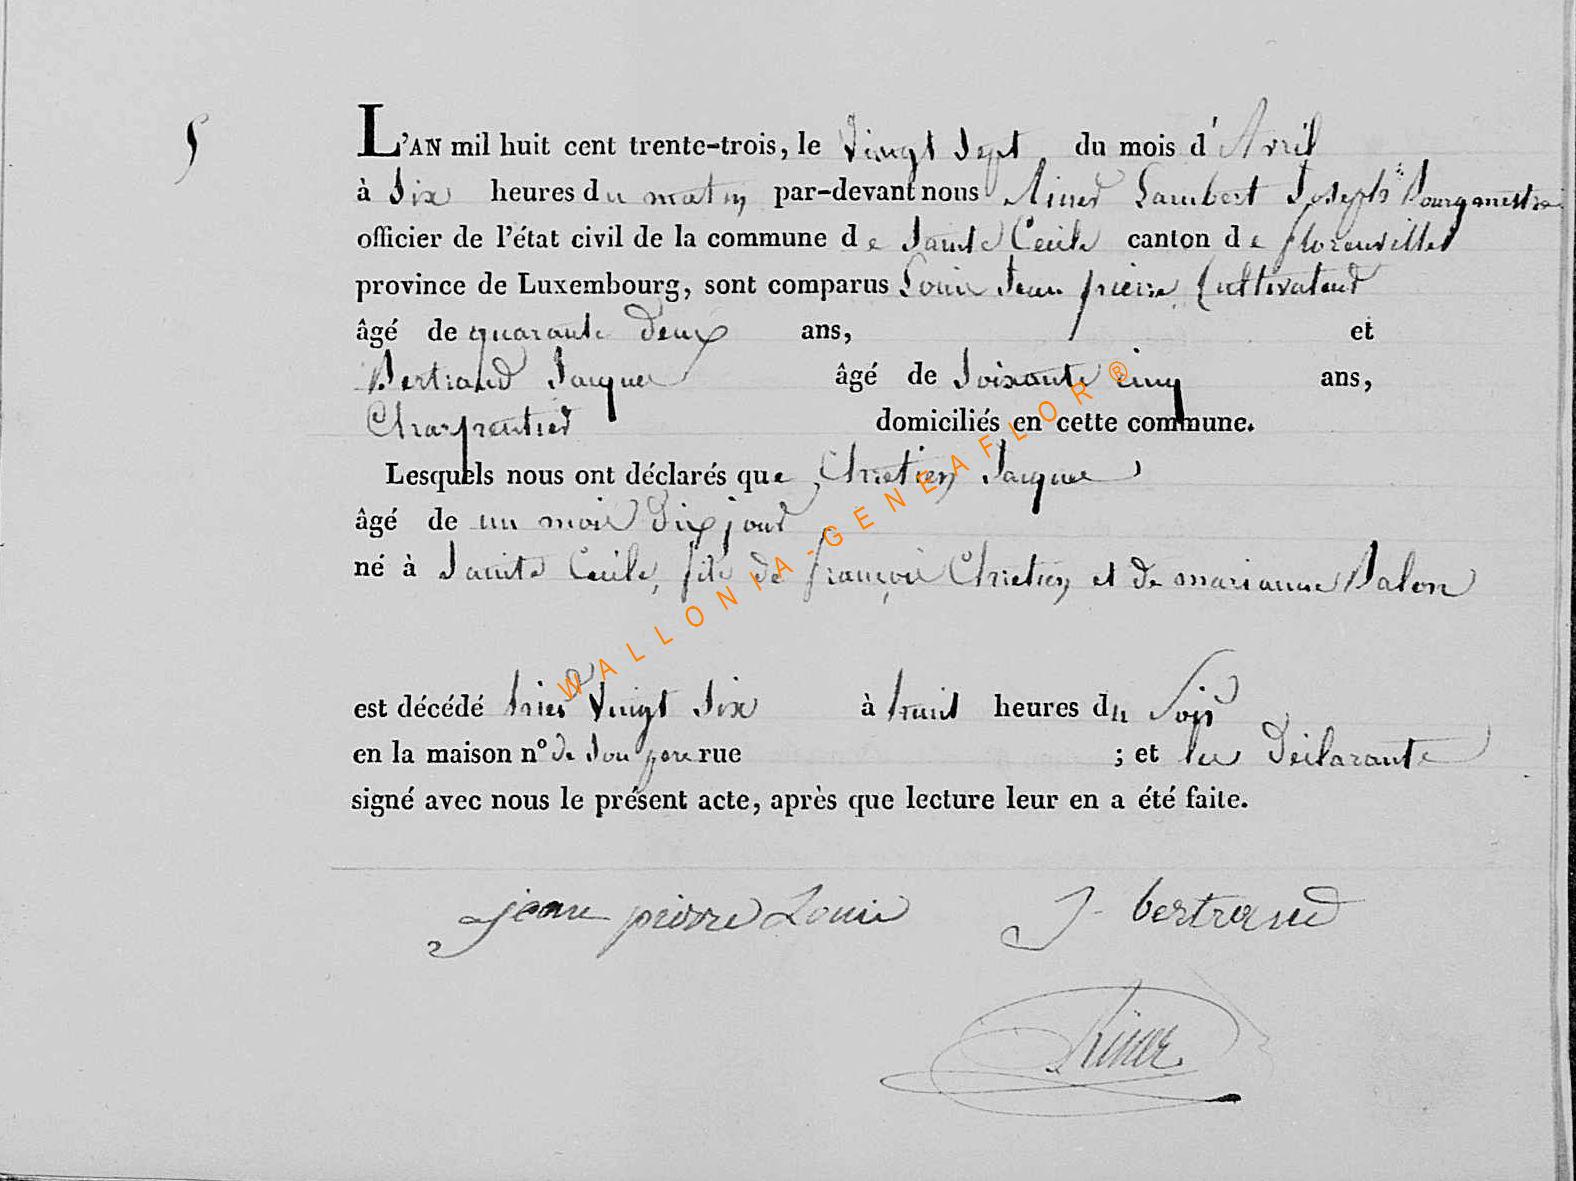 5
L'AN mil huit cent trente-trois, le vingt sept du mois d'Avril
à Six heures du matin par-devant nous Riner Lambert Joseph Bourgmestre
officier de l'état civil de la commune de Sainte Cecile canton de florenville
province de Luxembourg, sont comparus Louis Jean pierre Cultivateur
âgé de quarante deux ans, et
Bertrand Jacque âgé de Soixante cinq ans,
Charpentier domiciliés en cette commune.
Lesquels nous ont déclarés que Chretien Jacque
âgé de un mois Dix jour
né à Sainte Cecile, fils de françois Chretien et de marianne Balon
est décédé hier vingt Six à huit heures du Soir
en la maison n° de Son pere rue ; et les Déclarants
signé avec nous le présent acte, après que lecture leur en a été faite.
jean pierre Louis J. bertrand
Riner
WALLONIA-GENEAFLOR®